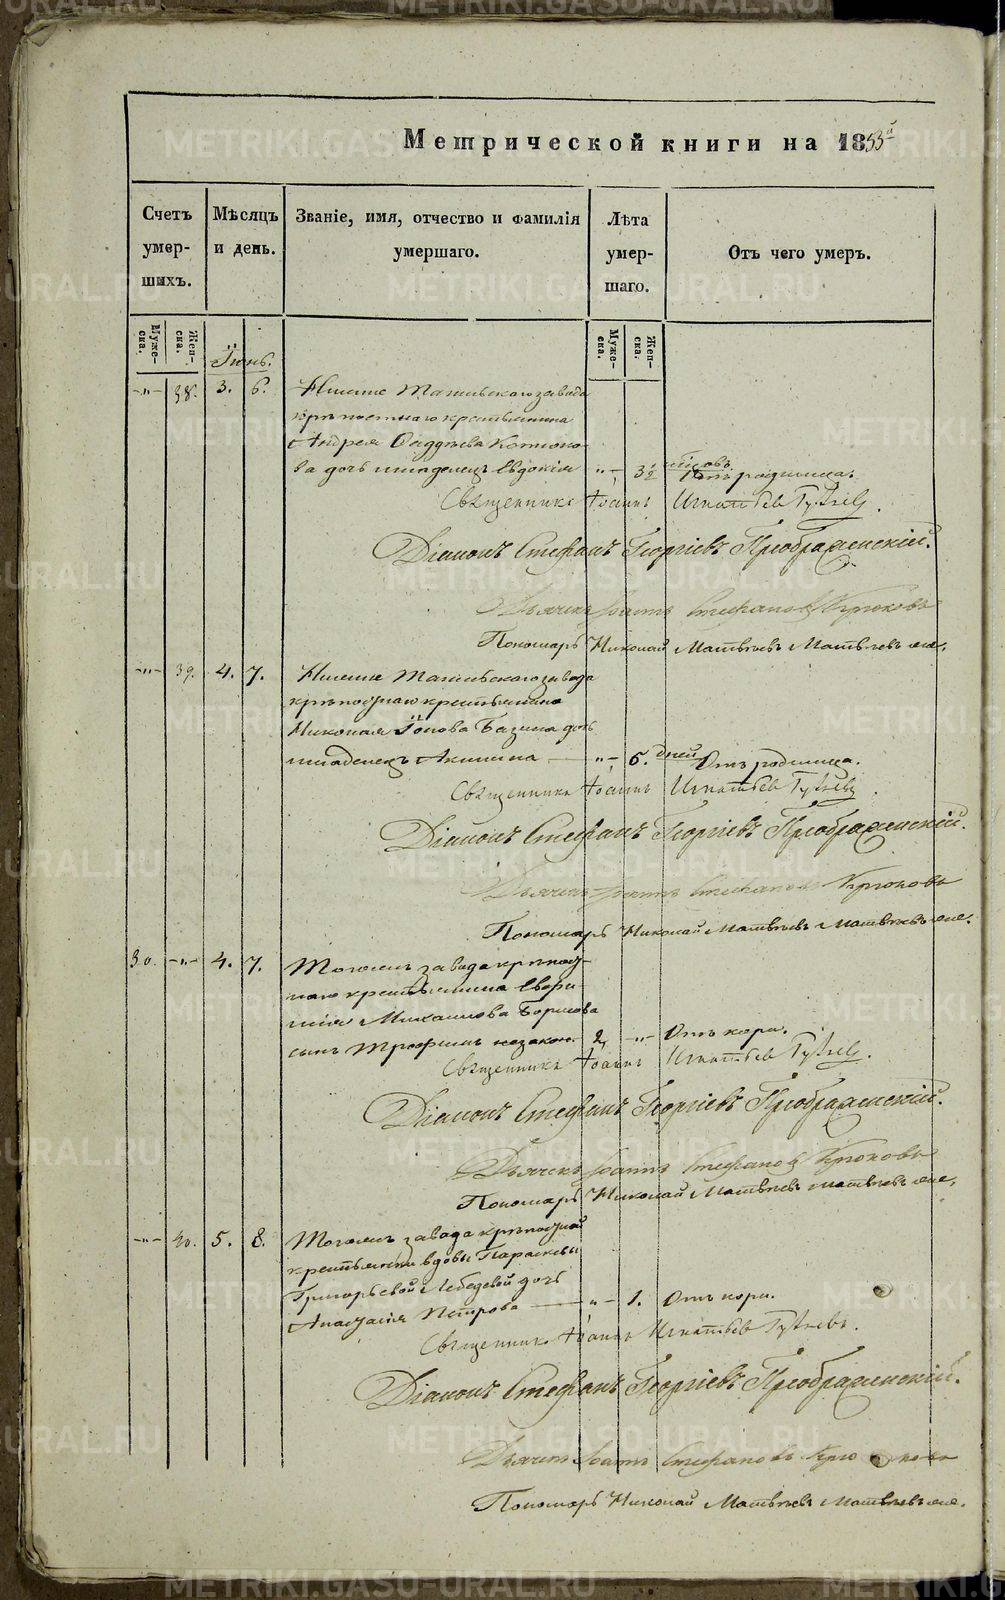 Метрической книги на 1853й
Счетъ умер-шихъ.
Мѣсяцъ и день.
Званіе, имя, отчество и фамилія умершаго.
Лѣта умер-шаго.
Отъ чего умеръ.
Муже-ска.
Жен-ска.
Муже-ска.
Жен-ска.
Іюнь.
-„- 38. 3. 6. Нижне Тагильскаго завода
крѣпостнаго крестьянина
Андрея Фаддѣева
ва дочь младенецъ Евдокія „- 3½ Отъ родимца.
Священникъ Іоаннъ Игнатьев
Діаконъ Стефанъ Георгіевъ Преображенскій.
Дьячекъ Іоаннъ Стефановъ Крюковъ
Пономарь Николай Матвѣевъ Матвѣевъ
-„- 39. 4. 7. Нижне Тагильскаго завода
крѣпостнаго крестьянина
Николая Іонова дочь
младенецъ Акилина „- 6. дней Отъ родимца.
Священникъ Іоаннъ Игнатьев
Діаконъ Стефанъ Георгіевъ Преображенскій.
Дьячекъ Іоаннъ Стефановъ Крюковъ
Пономарь Николай Матвѣевъ Матвѣевъ
30. -„- 4. 7. Тогожъ завода крѣпост-
наго крестьянина
Михаилова Борисова
сынъ Трофимъ незакон. 2, -„- Отъ кори.
Священникъ Іоаннъ Игнатьев
Діаконъ Стефанъ Георгіевъ Преображенскій.
Дьячекъ Іоаннъ Стефановъ Крюковъ
Пономарь Николай Матвѣевъ Матвѣевъ
-„- 40. 5. 8. Тогожъ завода крѣпостной
крестьянки вдовы Параскевы
Григорьевой Лебедевой дочь
Анастасія Петрова „- 1. Отъ кори.
Священникъ Іоаннъ Игнатьев
Діаконъ Стефанъ Георгіевъ Преображенскій.
Дьячекъ Іоаннъ Стефановъ Крюковъ
Пономарь Николай Матвѣевъ Матвѣевъ
METRIKI.GASO-URAL.RU